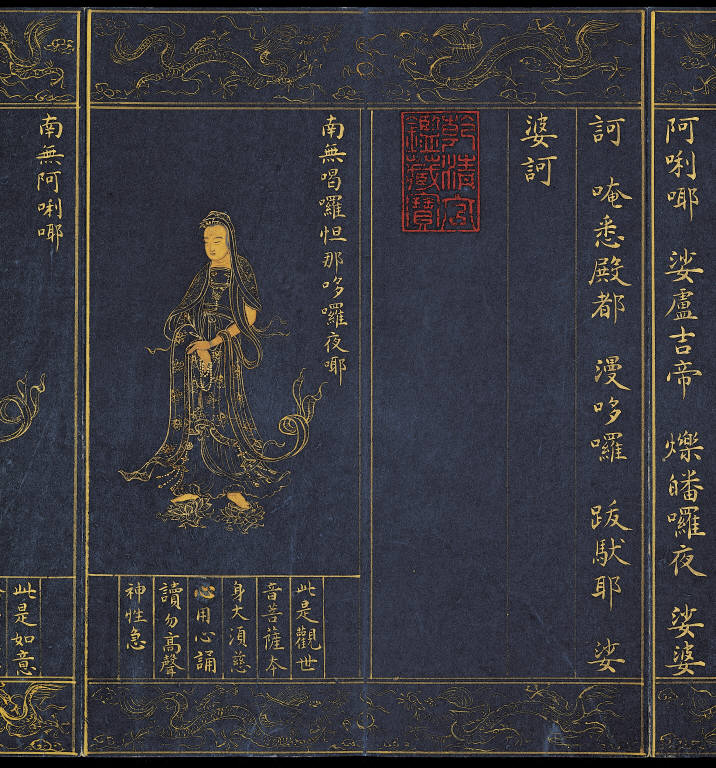 阿唎㖿 娑盧吉帝 爍皤囉夜 娑婆
訶 唵悉殿都 漫哆囉 跋馱耶 娑
婆訶
乾清宮
鑑藏寶
南無喝囉怛那哆囉夜㖿
此是觀世
音菩薩本
身大湏慈
心用心誦
讀勿高聲
神性急
南無阿唎㖿
此是如意